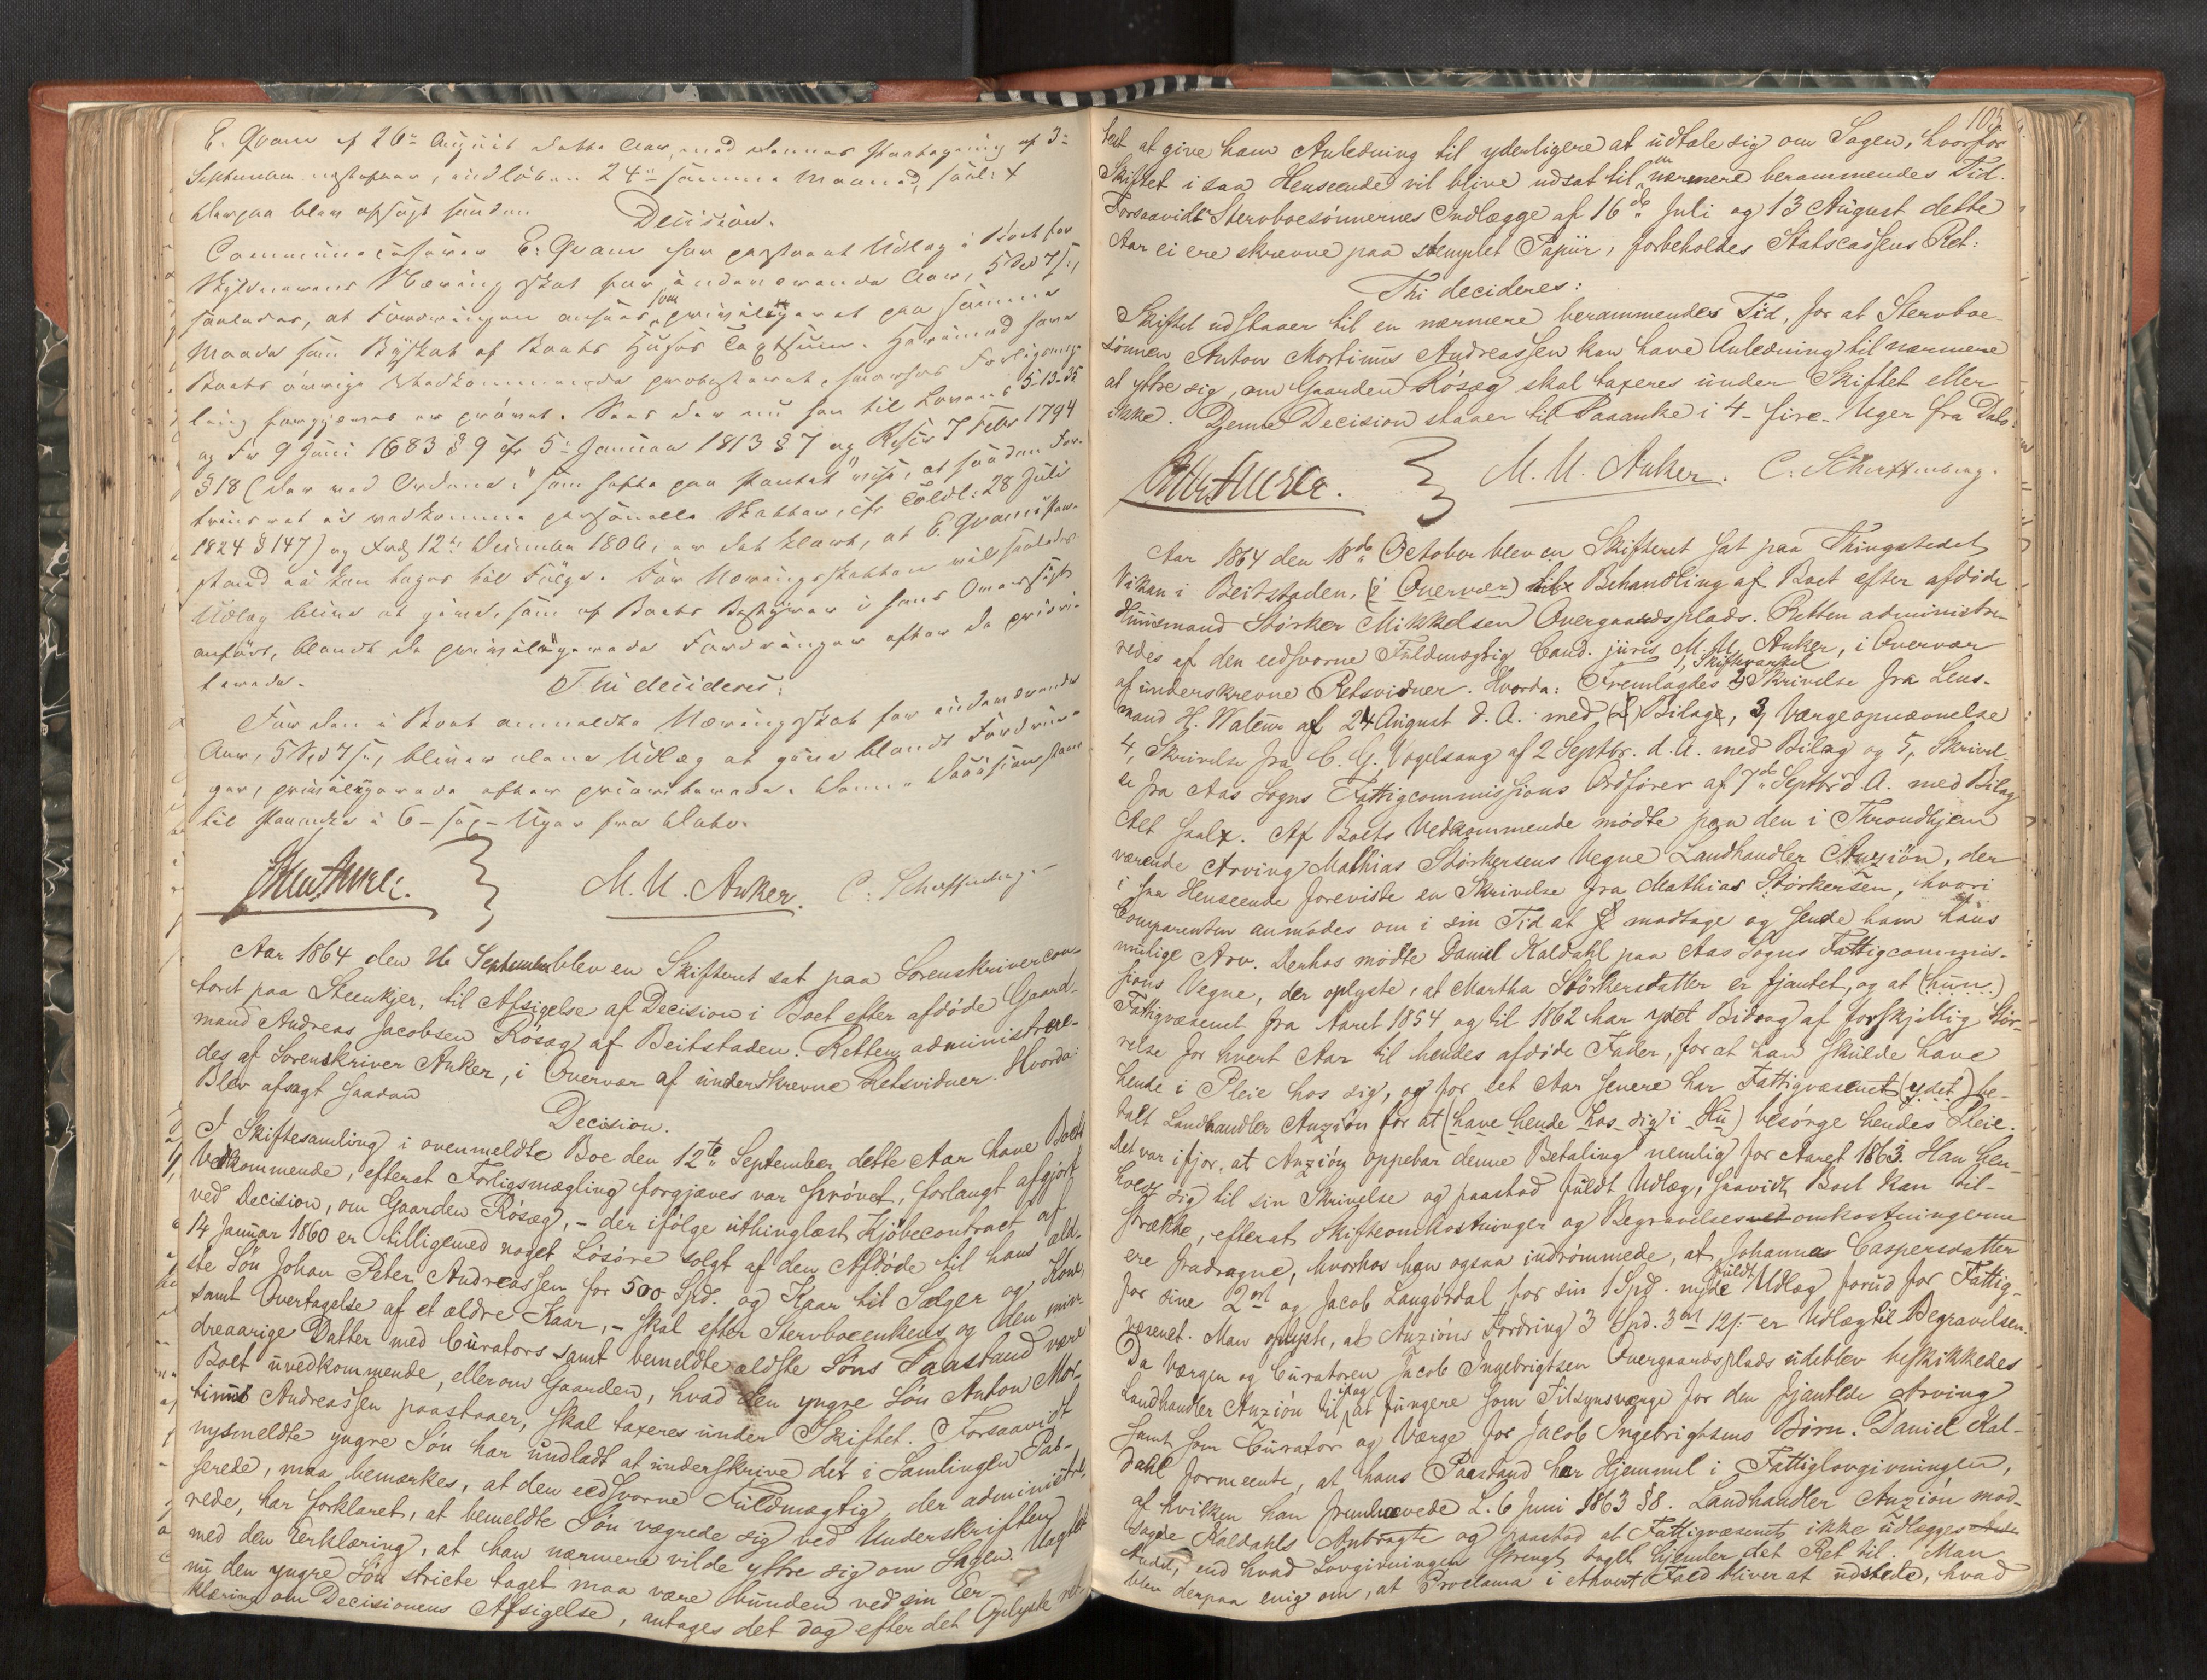 E. Qvam af 26de August dette Aar, med dennes Paategning af 3de
September næstefter, indløben 24de samme Maaned, saal: +
Derpaa blev afsagt saadan
Decision.
Communecasserer E. Qvam har paastaaet Udlæg i Boet for
Skyldnerens Næringsskat for indeværende Aar, 5 Spd 7 s.,
saaledes, at Fordringen ansees som privilegeret paa samme
Maade som Byskat af Boets Huses Taxtsum. Herimod have
Boets øvrige Vedkommende protesteret, hvorfor Forligsmæg-
ling forgjæves er prøvet. Naar der nu hen til Lovens 5-13-35
og Fr 9 Juni 1683 § 9 cfr 5te Januar 1813 § 7 og Rescr. 7 Febr 1794
§ 18 (der ved Ordene: "som hefte paa Pantet" vise, at saadan For-
trinsret ei vedkomme personelle Skatter, cfr Toldl: 28 Juli
1824 § 147) og Frdg 12te December 1806, er det klart, at E. Qvams Paa-
stand ei kan tages til Følge. For Næringsskatten vil saaledes
Udlæg blive at gjøre, som af Boets Bestyrer i hans Oversigt
anført, blandt de privilegerede Fordringer efter de priori-
terede.
Thi decideres:
For den i Boet anmeldte Næringsskat for indeværende
Aar, 5 Spd 7 s., bliver alene Udlæg at gjøre blandt Fordrin-
ger, privilegerede efter prioriterede. Denne Decision staaer
til Paaanke i 6 - sex - Uger fra Dato.
M. U. Anker. C. Scheffenberg.
Aar 1864 den September blev en Skifteret sat paa Sorenskrivercon-
toret paa Steenkjer, til Afsigelse af Decision i Boet efter afdøde Gaard-
mand Andreas Jacobsen Røsæg af Beitstaden. Retten administrere-
des af Sorenskriver Anker, i Overvær af underskrevne Retsvidner. Hvorda:
Blev afsagt saadan
Decision.
I Skiftesamling i ovenmeldte Boe den 12te September dette Aar have Boets
Vedkommende, efterat Forligsmægling forgjæves var prøvet, forlangt afgjort
ved Decision, om Gaarden Røsæg, - der ifølge uthinglæst Kjøbecontract af
14 Januar 1860 er tilligemed noget Løsøre solgt af den Afdøde til hans æld-
ste Søn Johan Peter Andreassen for 500 Spd. og Kaar til Sælger og Kone,
samt Overtagelse af et ældre Kaar, - skal efter Stervboeenkens og den min-
dreaarige Datter med Curators samt bemeldte ældste Søns Paastand være
Boet uvedkommende, eller om Gaarden, hvad den yngre Søn Anton Mor-
timus Andreassen paastaaer, skal taxeres under Skiftet. Forsaavidt
nysmeldte yngre Søn har undladt at underskrive det i Samlingen Pas-
serede, maa bemærkes, at den eedsvorne Fuldmægtig, der administre-
rede, har forklaret, at bemeldte Søn vægrede sig ved Underskriften
med den Erklæring, at han nærmere vilde yttre sig om Sagen. Uagtet
nu den yngre Søn stricte taget maa være bunden ved sin Er-
klæring om Decisionens Afsigelse, antages det dog efter det Oplyste ret-
103
test at give ham Anledning til yderligere at udtale sig om Sagen, hvorfor
Skiftet i saa Henseende vil blive udsat til en nærmere berammendes Tid.
Forsaavidt Stervboesønnernes Indlægge af 16de Juli og 13 August dette
Aar ei ere skrevne paa stemplet Papiir, forbeholdes Statscassens Ret:
Thi decideres:
Skiftet udstaaer til en nærmere berammendes Tid, for at Stervboe-
sønnen Anton Mortimus Andreassen kan have Anledning til nærmere
at yttre sig, om Gaarden Røsæg skal taxeres under Skiftet eller
ikke. Denne Decision staaer til Paaanke i 4 - fire - Uger fra Dato:
M. U. Anker. C. Scheffenberg.
Aar 1864 den 18de October blev en Skifteret sat paa Thingstedet
Vikan i Beitstaden, (i Overvær) til Behandling af Boet efter afdøde
Huusmand Størker Mikkelsen Overgaardsplads. Retten administre-
redes af den eedsvorne Fuldmægtig Cand. juris M. U. Anker, i Overvær
af underskrevne Retsvidner. Hvorda: Fremlagdes 1, Skiftvarsel 2, Skrivelse fra Lens-
mand H. Walum af 24 August d. A. med (2) Bilage, 3, Værgeopnævnelse
4, Skrivelse fra C. G. Vogelsang af 2 Septbr. d. A. med Bilag og 5, Skrivel-
se fra Aas Sogns Fattigcommissions Ordfører af 7de Septbr d. A. med Bilag
Alt saal +. Af Boets Vedkommende mødte paa den i Throndhjem
værende Arving Mathias Størkersens Vegne Landhandler Anzión, der
i saa Henseende foreviste en Skrivelse fra Mathias Størkersen, hvori
Comparenten anmodes om i sin Tid at modtage og sende ham hans
mulige Arv. Derhos mødte Daniel Kaldahl paa Aas Sogns Fattigcommis-
sions Vegne, der oplyste, at Martha Størkersdatter er fjantet, og at (hun)
Fattigvæsenet fra Aaret 1854 og til 1862 har ydet Bidrag af forskjellig Stør-
relse for hvert Aar til hendes afdøde Fader, for at han skulde have
hende i Pleie hos sig, og for et Aar senere har Fattigvæsenet (ydet) be-
talt Landhandler Anzión for at (have hende hos sig i Hu) besørge hendes Pleie.
Det var ifjor, at Anzión oppebar denne Betaling nemlig for Aaret 1863. Han hen-
holdt sig til sin Skrivelse og paastod fuldt Udlæg, saavidt Boet kan til-
strække, efterat Skifteomkostninger og Begravelsesomkostningerne
ere fradragne, hvorhos han ogsaa indrømmede, at Johanna Caspersdatter
for sine 2 ort og Jacob Langdal for sin 1 Spd. nyde fuldt Udlæg forud for Fattig-
væsenet. Man oplyste, at Anzións Fordring 3 Spd. 3 ort 12 s. er Udlæg til Begravelsen.
Da Værgen og Curatoren Jacob Ingebrigtsen Overgaardsplads udeblev beskikkedes
Landhandler Anzión til idag at fungere som Tilsynsværge for den fjantede Arving
samt som Curator og Værge for Jacob Ingebrigtsens Børn. Daniel Kal-
dahl formeente, at hans Paastand har Hjemmel i Fattiglovgivningen,
af hvilken han fremhævede L. 6 Juni 1863 § 8. Landhandler Anzión mod-
sagde Kaldahls Anbragte og paastod at Fattigvæsenet ikke udlægges
Andet, end hvad Lovgivningen strengt taget hjemler det Ret til. Man
blev derpaa enig om, at Proclama i ethvert Fald bliver at udstede, hvad